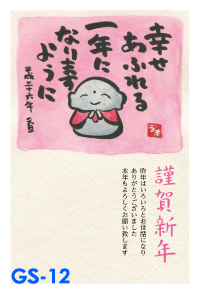 幸せ
あふれる
一年に
なります
ように
平成二十六年 元旦
謹賀新年
昨年はいろいろとお世話になり
ありがとうございました
本年もよろしくお願い致します
GS-12